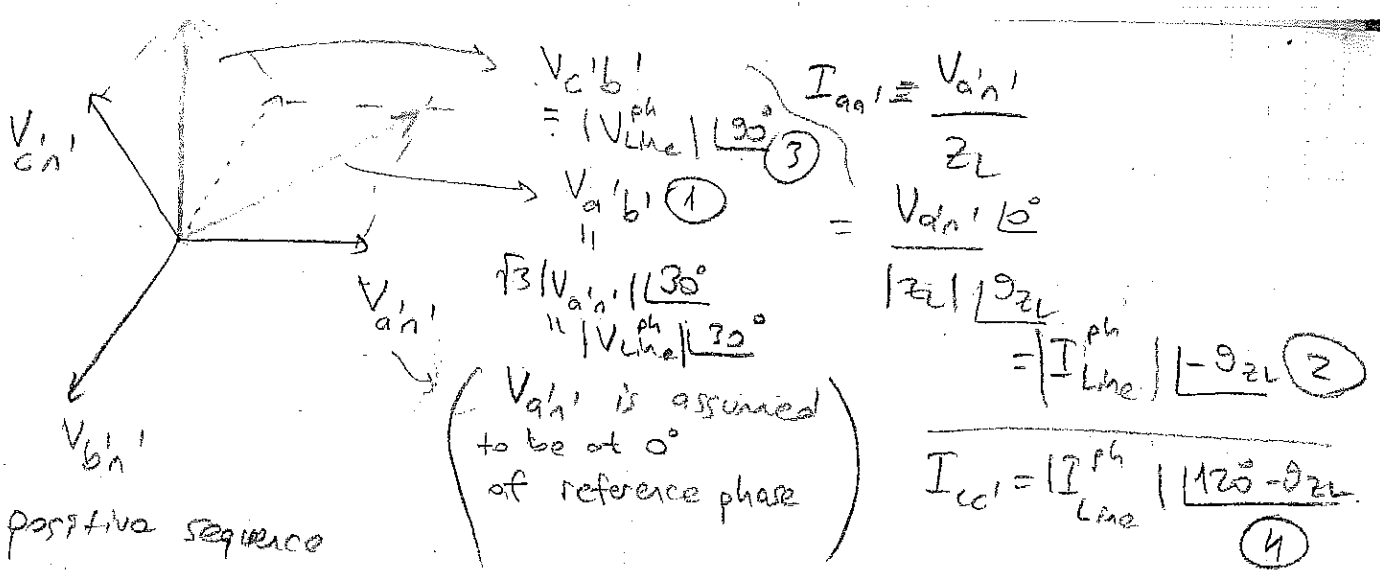 V_c'n'
V_a'n'
V_b'n'
positive sequence
V_c'b'
= |V_Line^ph| ∠90° ③
V_a'b' ①
"
√3 |V_a'n'| ∠30°
" |V_Line^ph| ∠30°
( V_a'n' is assumed
to be at 0°
of reference phase )
I_aa' = V_a'n' / Z_L
= V_a'n' ∠0° / |Z_L| ∠θ_ZL
= |I_Line^ph| ∠-θ_ZL ②
I_cc' = |I_Line^ph| ∠120°-θ_ZL
④